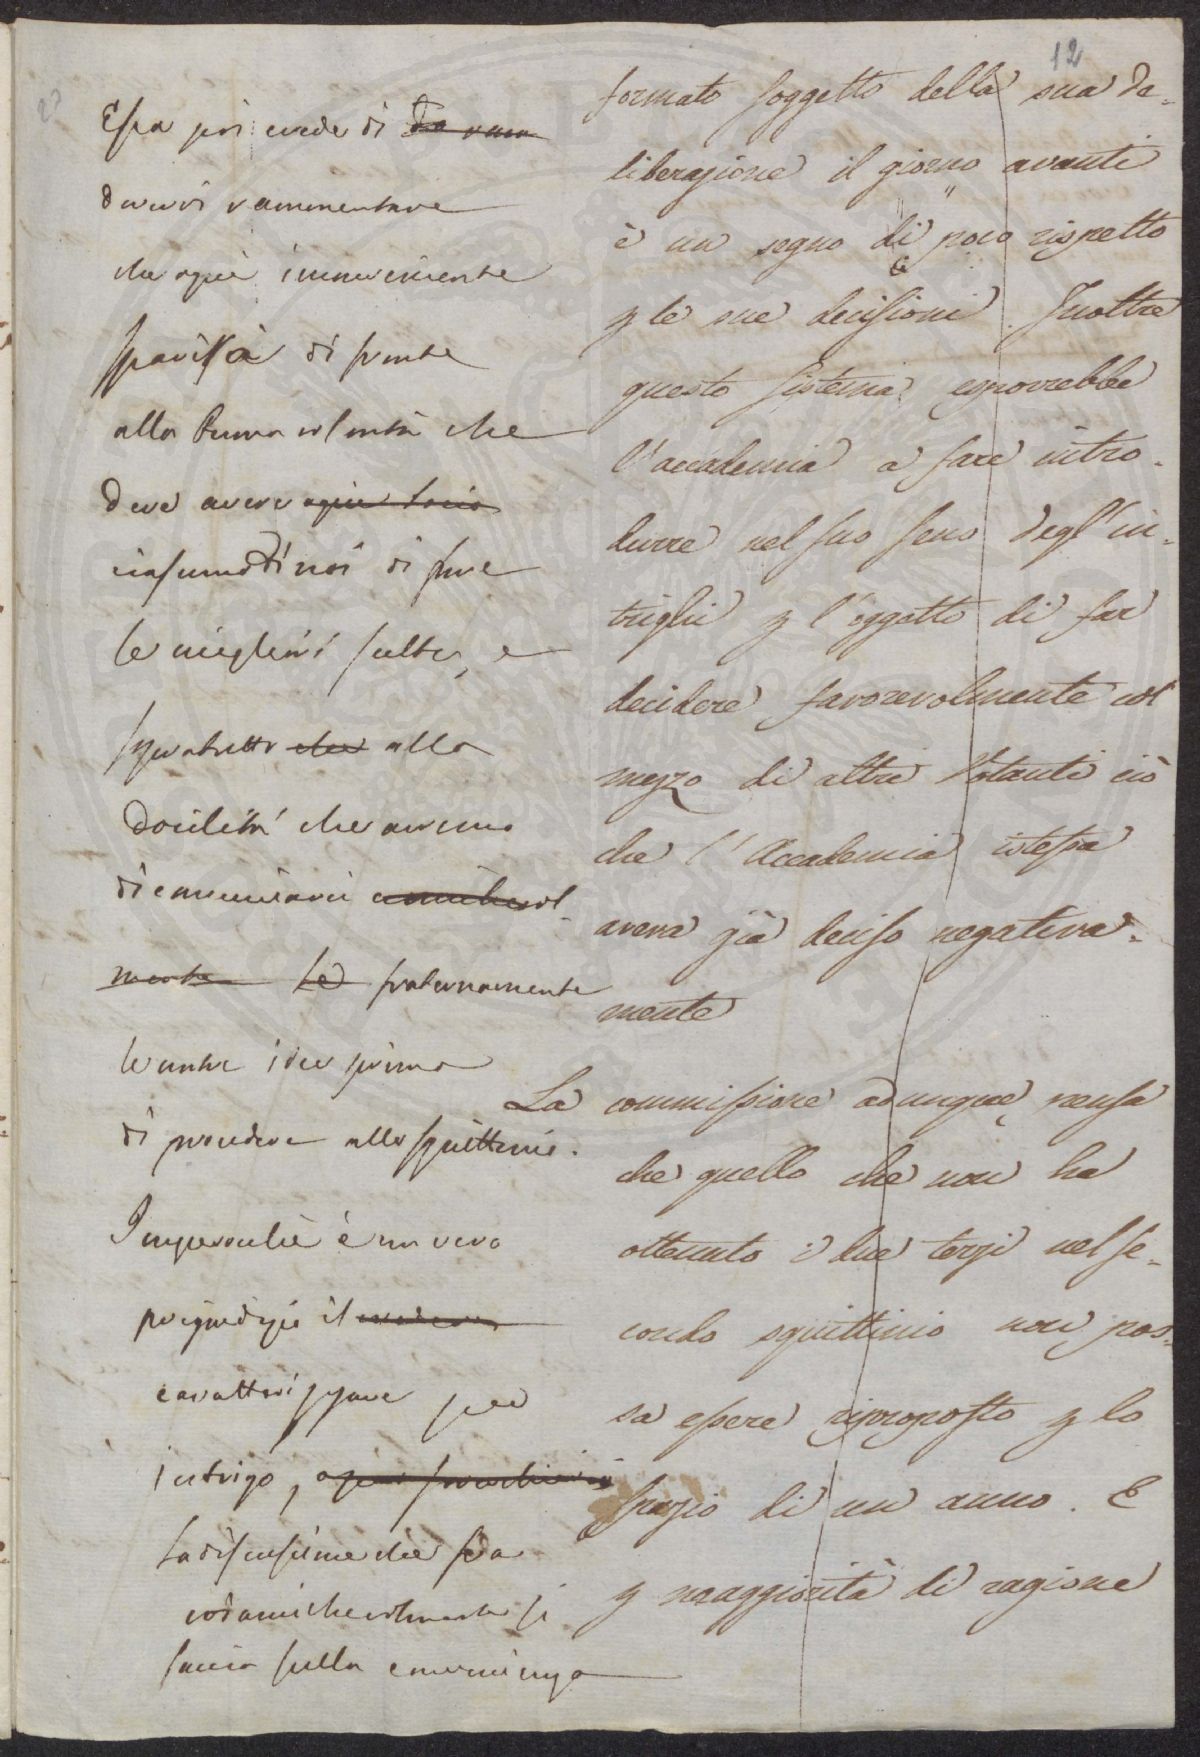 12
27
Essa poi crede di
dovervi rammentare
che ogni inconveniente
sparisca di fronte
alla buona volontà che
deve avere ogni socio
ciascuno di noi di fare
le migliori scelte, e
sopratutto che alla
docilità che avremo
di comunicarci amichevol-
mente le fraternamente
le nostre idee prima
di procedere allo squittinio.
Imperocché è un vero
pregiudizio il
caratterizzare per
intrigo,
la discussione che
così amichevolmente si
faccia sulla convenienza
formato soggetto della sua de-
liberazione il giorno avanti
è un segno di poco rispetto
p le sue decisioni. Inoltre
questo sistema esporrebbe
l'accademia a fare intro-
durre nel suo seno degl'in-
trighi p l'oggetto di far
decidere favorevolmente col
mezzo di altri Votanti ciò
che l'Accademia istessa
aveva già deciso negativa-
mente
La commissione adunque pensa
che quello che non ha
ottenuto i due terzi nel se-
condo squittinio non pos-
sa essere riproposto p lo
spazio di un anno. E
p maggiorità di ragione